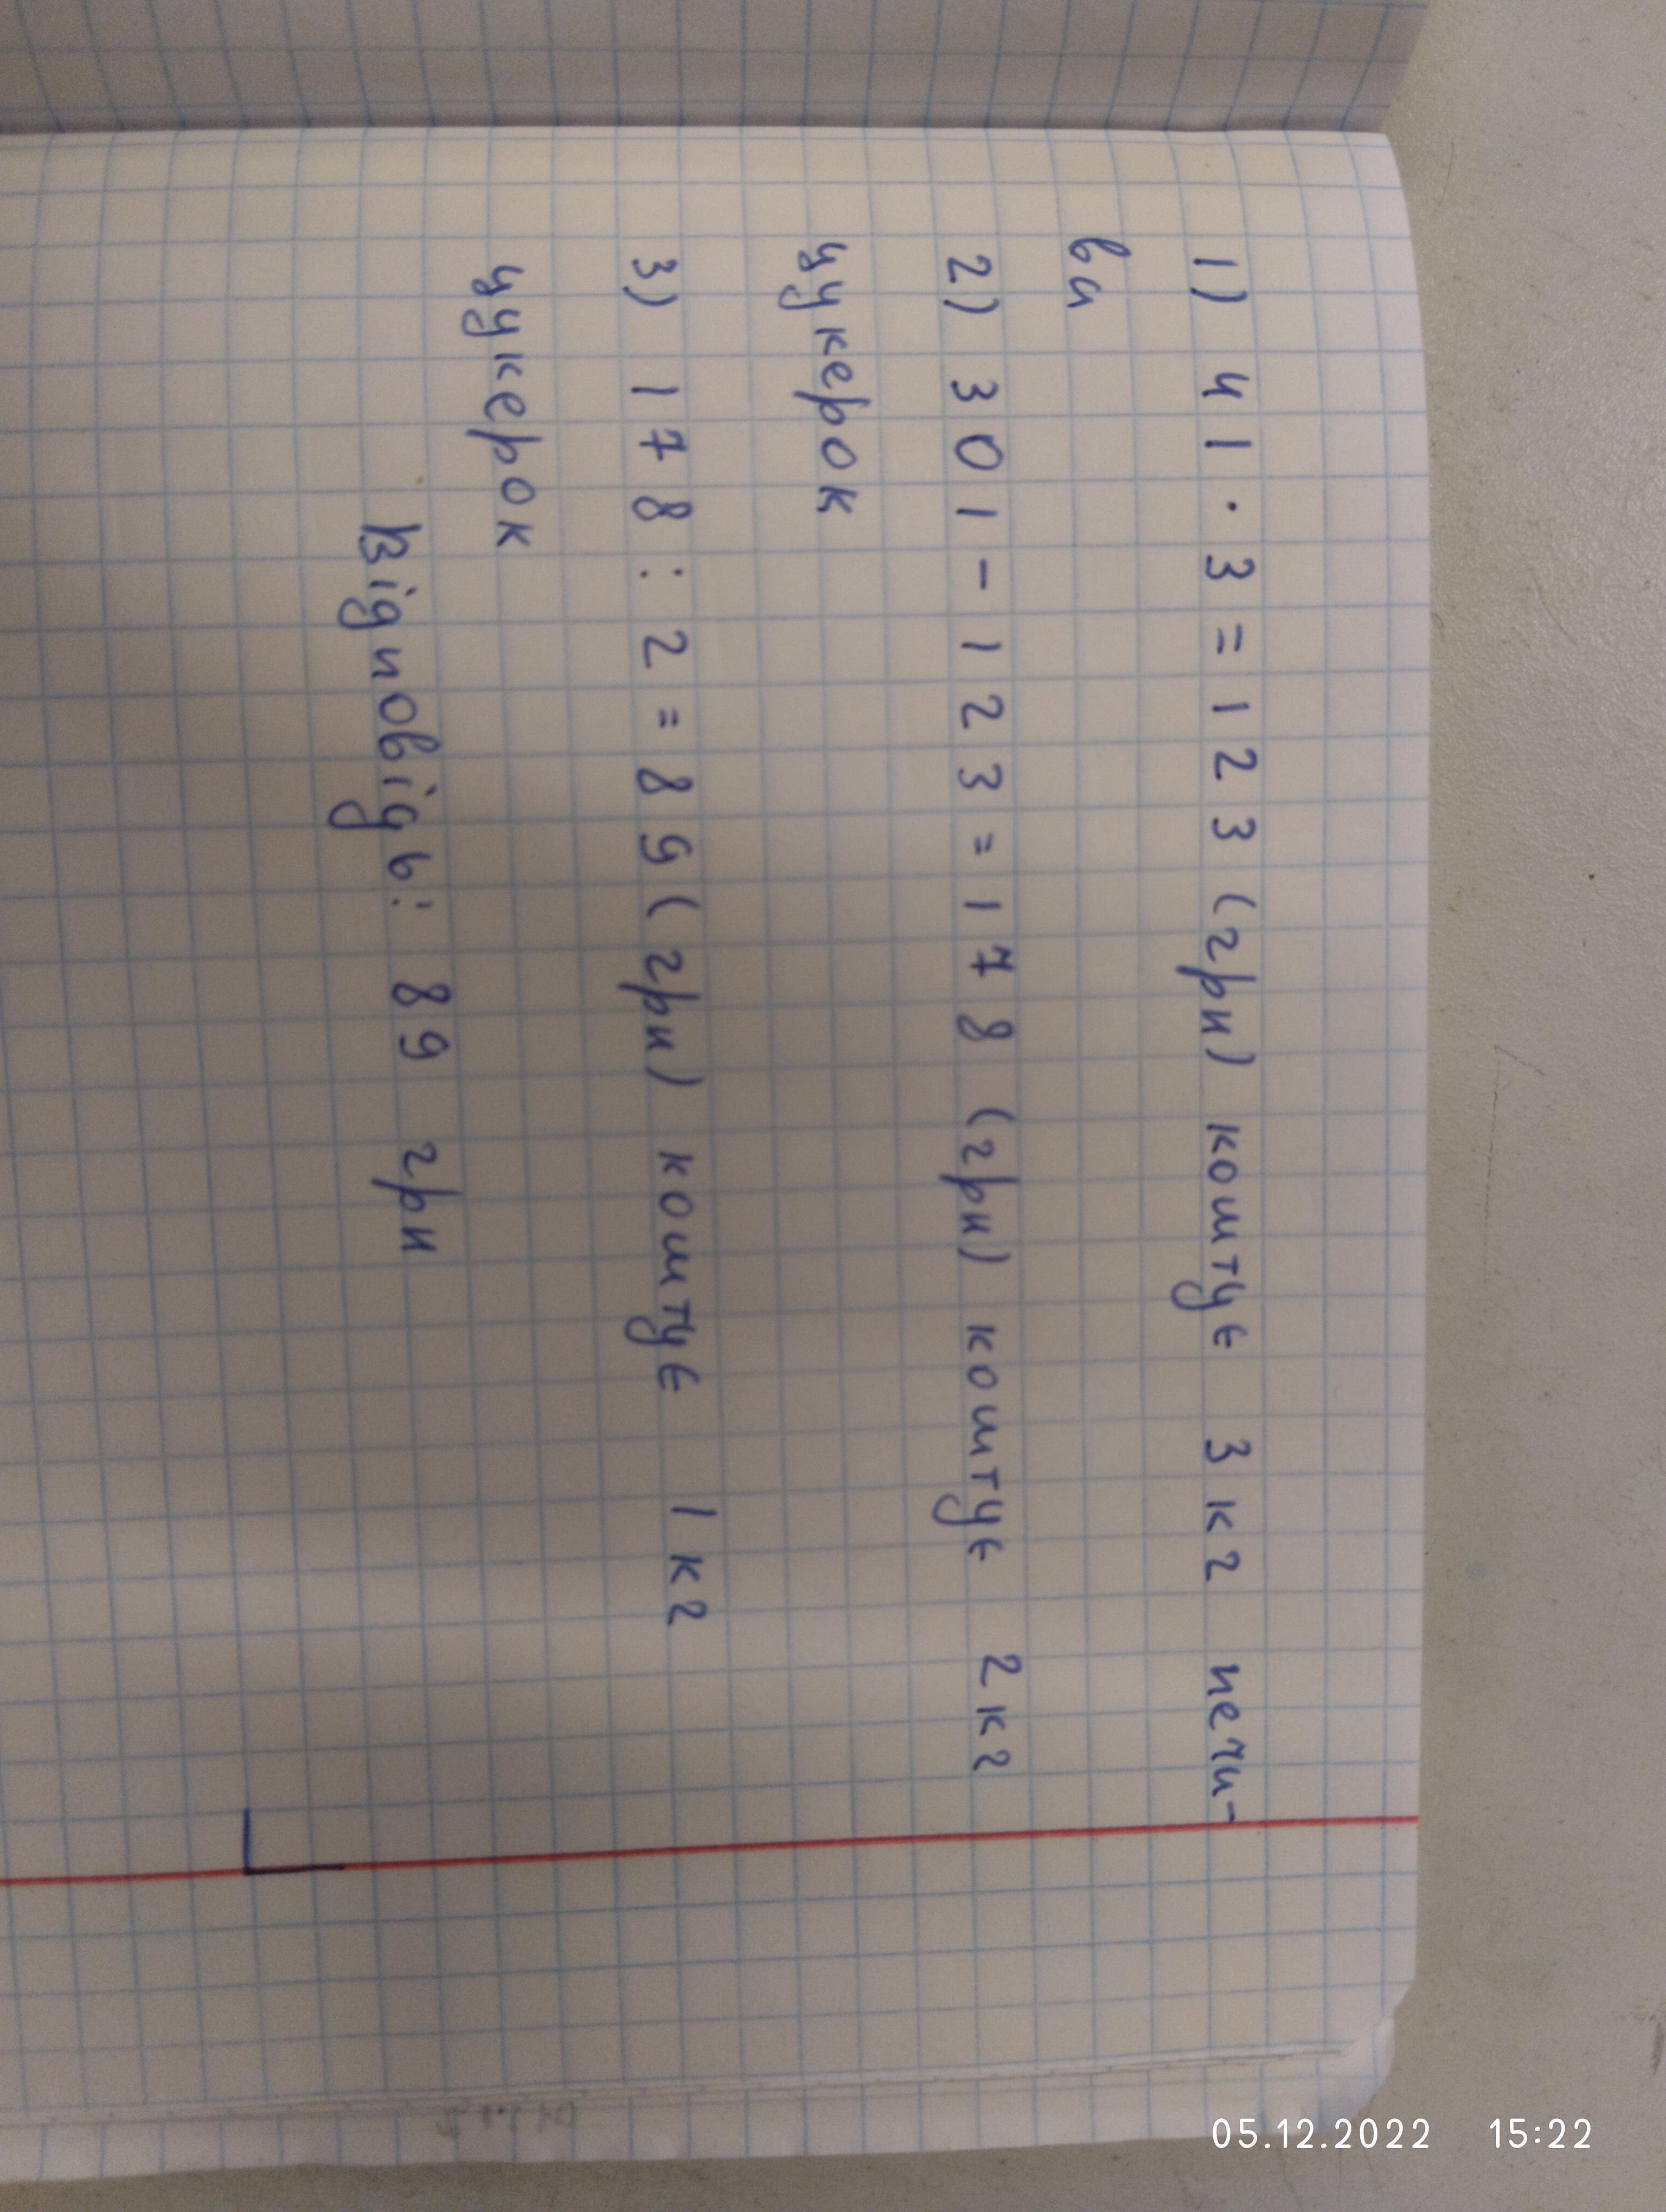 1) 41 · 3 = 123 (грн) коштує 3 кг печи-
ва
2) 301 - 123 = 178 (грн) коштує 2 кг
цукерок
3) 178 : 2 = 89 (грн) коштує 1 кг
цукерок
Відповідь: 89 грн
05.12.2022 15:22